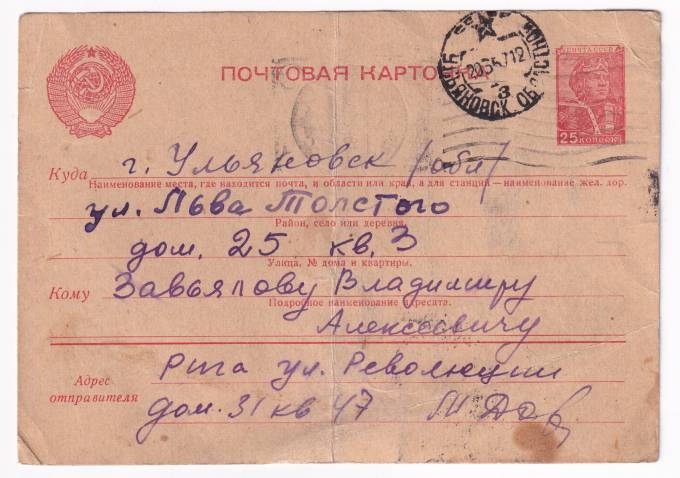 ПОЧТОВАЯ КАРТОЧКА
ПОЧТА СССР
25 КОПЕЕК
УЛЬЯНОВСК ОБЛАСТНОЙ
20 5 57 12
З
Куда г. Ульяновск (обл)
Наименование места, где находится почта, и области или края, а для станций—наименование жел. дор.
ул. Льва Толстого
Район, село или деревня.
дом. 25 кв. 3
Улица, № дома и квартиры.
Кому Завьялову Владимиру
Подробное наименование адресата.
Алексеевичу
Адрес отправителя
Рига ул. Революции
дом. 31 кв 47